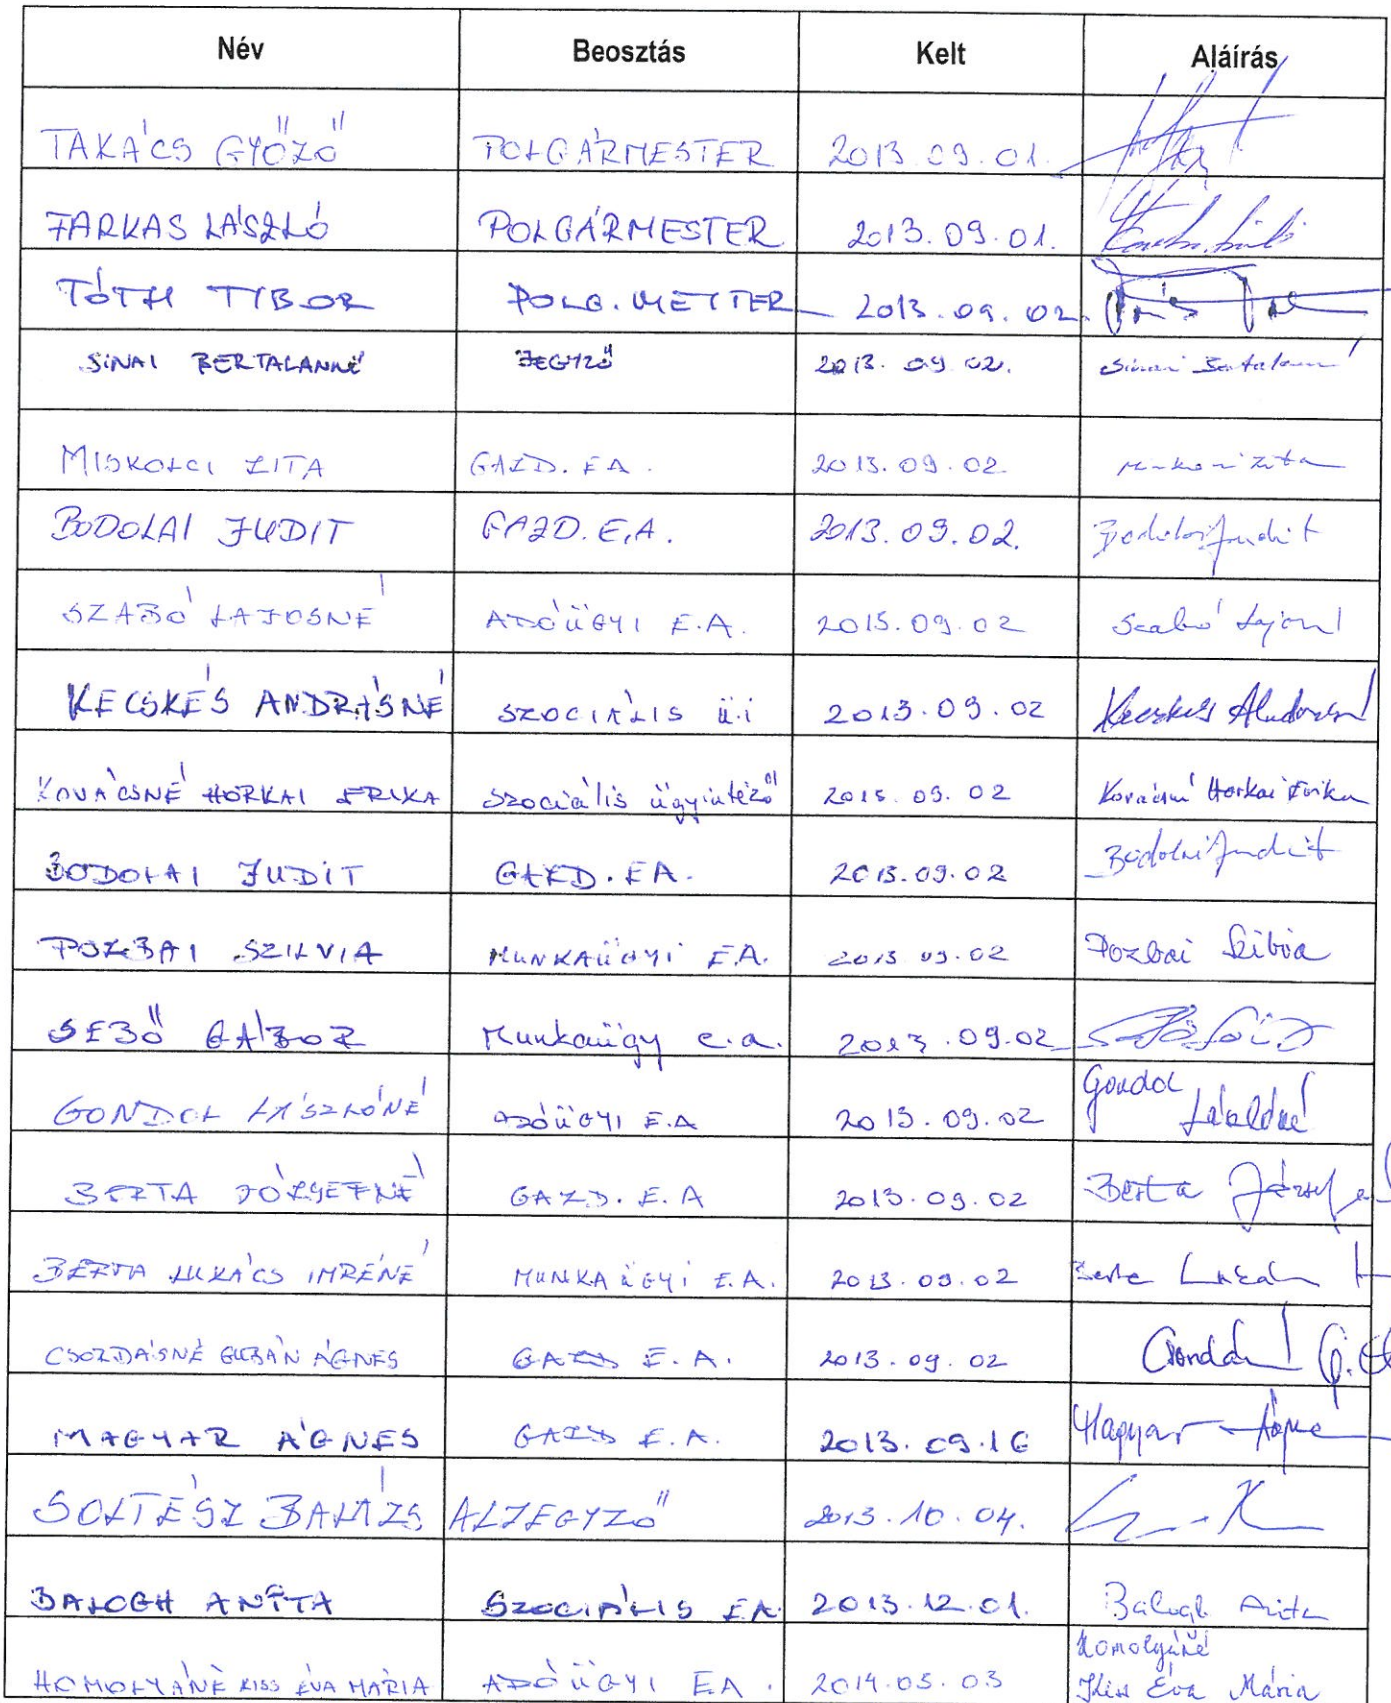 Név Beosztás Kelt Aláírás
TAKÁCS GYŐZŐ POLGÁRMESTER 2013.09.01.
FARKAS LÁSZLÓ POLGÁRMESTER 2013.09.01. Farkas László
TÓTH TIBOR POLG.MESTER 2013.09.02.
SINAI BERTALANNÉ JEGYZŐ 2013.09.02. Sinai Bertalanné
MISKOLCI ZITA GAZD. EA. 2013.09.02 Miskolci Zita
BODOLAI JUDIT GAZD. E.A. 2013.09.02. Bodolai Judit
SZABÓ LAJOSNÉ ADÓÜGYI E.A. 2013.09.02 Szabó Lajosné
KECSKÉS ANDRÁSNÉ SZOCIÁLIS ü.i 2013.09.02 Kecskés Andrásné
KOVÁCSNÉ HORKAI ERIKA szociális ügyintéző 2013.09.02 Kovácsné Horkai Erika
BODOLAI JUDIT GAZD. EA. 2013.09.02 Bodolai Judit
POZBAI SZILVIA MUNKAÜGYI E.A. 2013.09.02 Pozbai Szilvia
SEBŐ GÁBOR Munkaügy e.a. 2013.09.02
GONDOL LÁSZLÓNÉ ADÓÜGYI E.A 2013.09.02 Gondol
Lászlóné
BERTA JÓZSEFNÉ GAZD. E.A 2013.09.02 Berta József
BERTA LUKÁCS IMRÉNÉ MUNKAÜGYI E.A. 2013.09.02 Berta Lukács
CSOZDÁSNÉ GUBÁN ÁGNES GAZD E.A. 2013.09.02
MAGYAR ÁGNES GAZD E.A. 2013.09.16 Magyar Ágnes
SOLTÉSZ BALÁZS ALJEGYZŐ 2013.10.04.
BALOGH ANITA SZOCIÁLIS EA. 2013.12.01. Balogh Anita
HOMOLYÁNÉ KISS ÉVA MÁRIA ADÓÜGYI EA. 2014.03.03 Homolyáné
Kiss Éva Mária